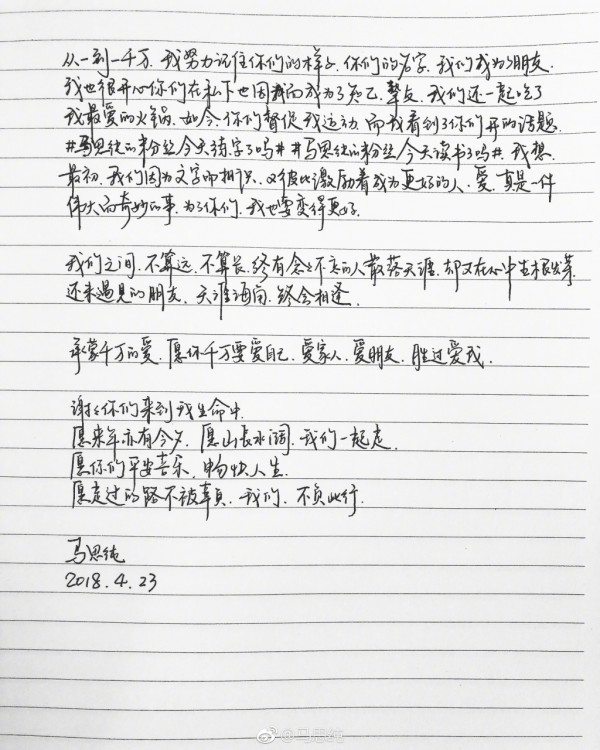 从一到一千万，我努力记住你们的样子，你们的名字，我们成为朋友，
我也很开心你们在私下也因我而成为了知己，挚友，我们还一起吃了
我最爱的火锅，如今，你们督促我运动，而我看到了你们开的话题，
#马思纯的粉丝今天练字了吗##马思纯的粉丝今天读书了吗#，我想，
最初，我们因为文字而相识，又彼此激励着成为更好的人，爱，真是一件
伟大而奇妙的事，为了你们，我也要变得更好，
我们之间，不算远，不算长，终有念念不忘的人散落天涯，却又在心中生根发芽，
还未遇见的朋友，天涯海角，终会相逢，
承蒙千万的爱，愿你千万要爱自己，爱家人，爱朋友，胜过爱我，
谢谢你们来到我生命中，
愿来年亦有今夕，愿山长水阔，我们一起走，
愿你们平安喜乐，畅快人生，
愿走过的路不被辜负，我们，不负此行，
马思纯
2018.4.23
@马思纯